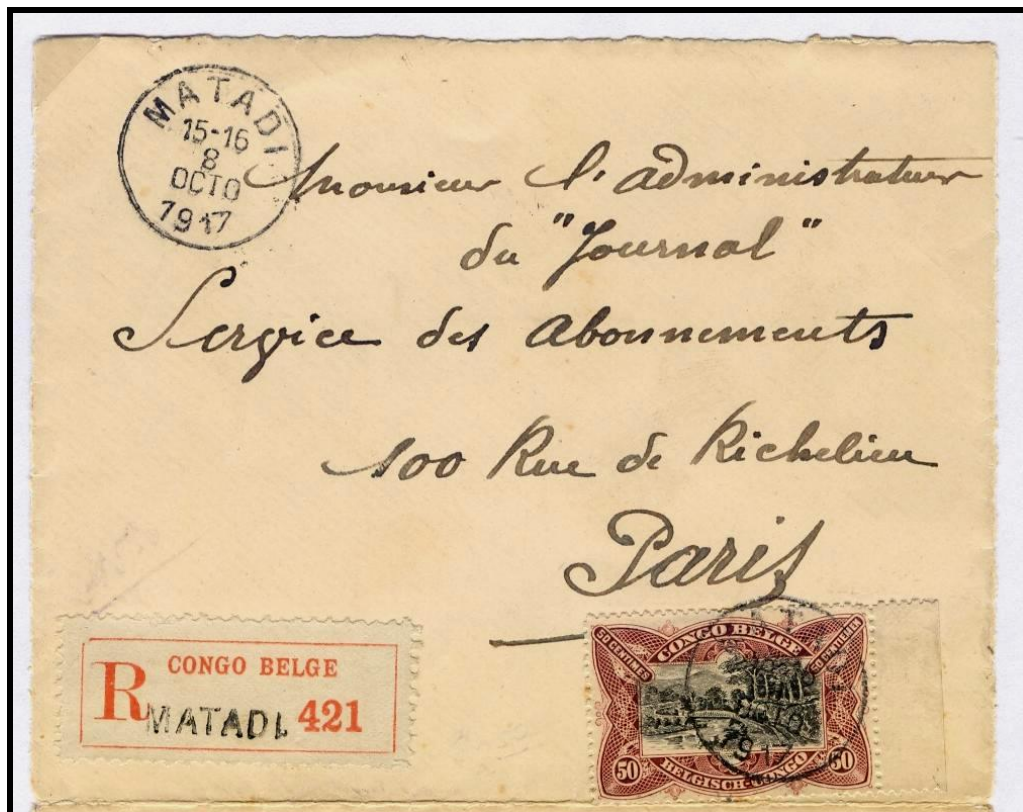 MATADI
15-16
8
OCTO
1917
Monsieur l'administrateur
du "Journal"
Service des Abonnements
100 Rue de Richelieu
Paris
R CONGO BELGE
MATADI. 421
50 CENTIMES
CONGO BELGE
50 CENTIEMEN
50 BELGISCH-CONGO 50
OCTO
1917